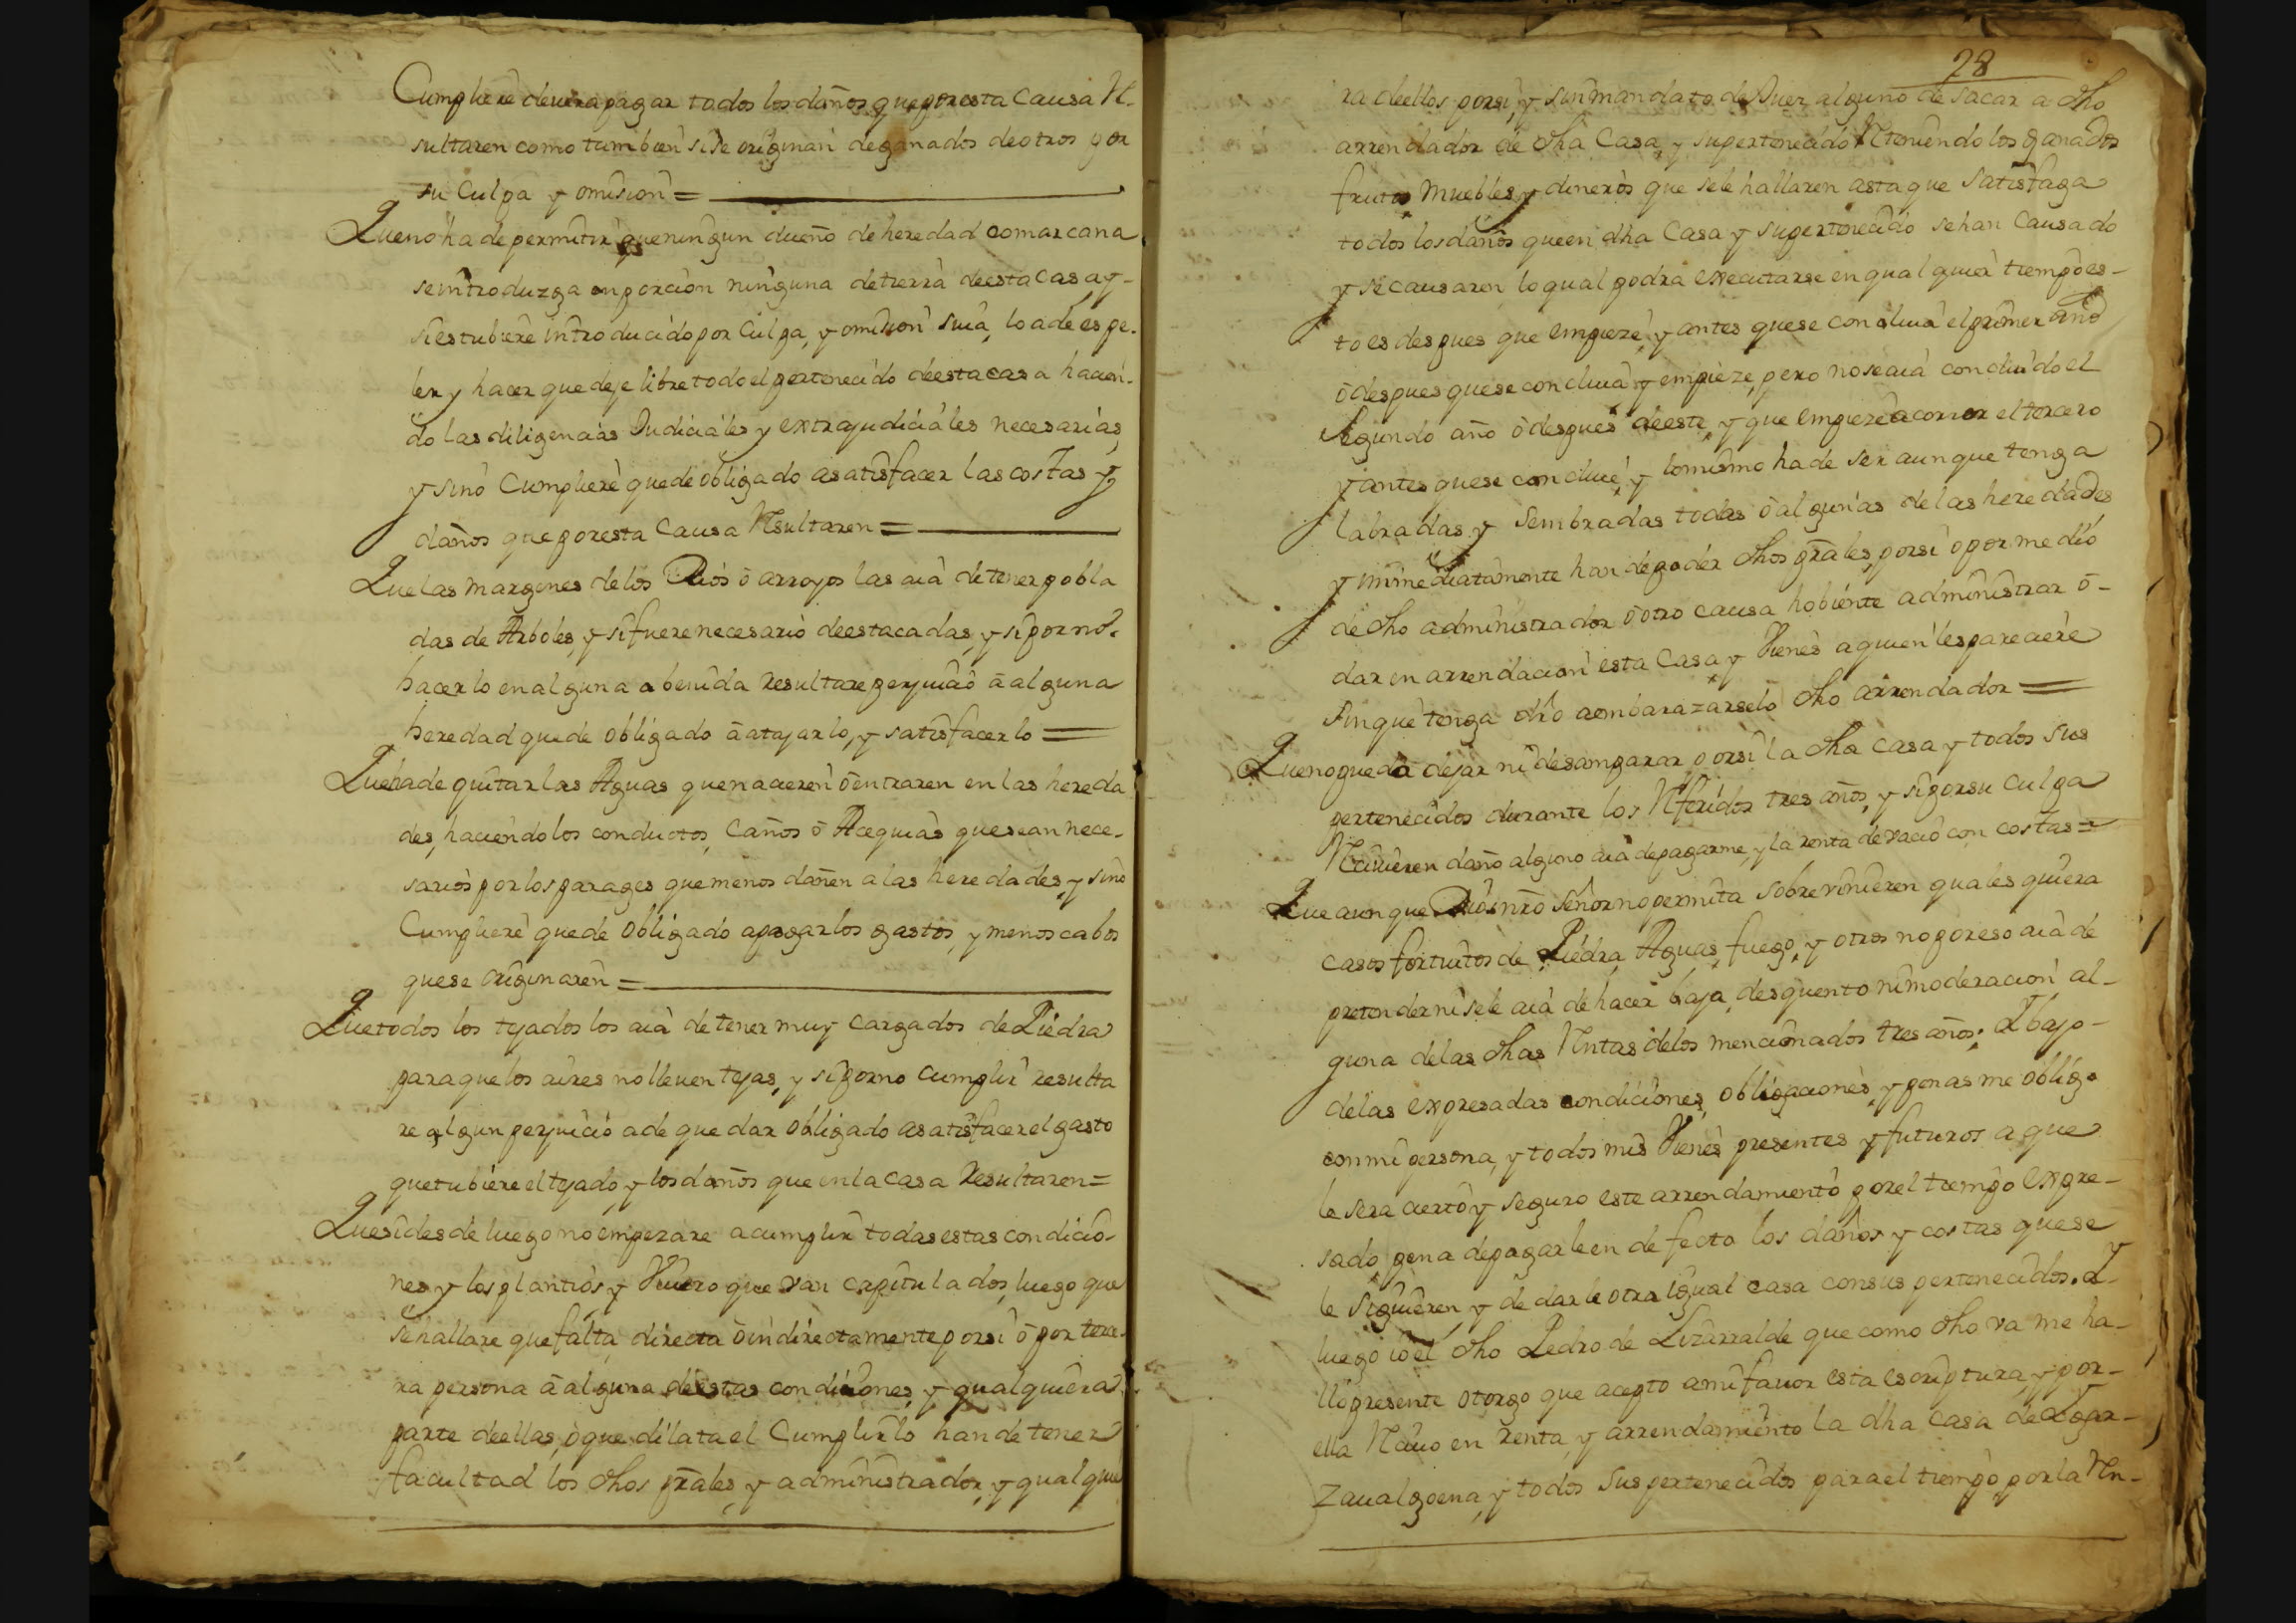 Cumpliere devera pagar todos los daños que por esta Causa Re-
sultaren como tambien si se originan de ganados de otros por
su Culpa y omision =
Que no ha de permitir que ningun dueño de heredad comarcana
se introduzga en porcion ninguna de tierra de esta Casa y-
si estubiere introducido por Culpa, y omision suia, lo a de espe-
ler y hacer que deje libre todo el pertenecido de esta casa hacien-
do las diligencias Judiciales y extrajudiciales necesarias,
y sino Cumpliere quede obligado a satisfacer las costas y
daños que por esta Causa Resultaren =
Que las margenes de los Rios ô arroyos las aia de tener pobla
das de Arboles, y si fuere necesario de estacadas, y si por no-
hacerlo en alguna abenida Resultare perjuicio â alguna
heredad quede obligado â atajarlo, y satisfacerlo =
Que ha de quitar las Aguas que nacieren ô entraren en las hereda
des, haciendo los conductos, Caños ô Acequias que sean nece-
sarios por los parages que menos dañen a las heredades, y sino
Cumpliere quede obligado a pagar los gastos, y menos cabos
que se originaren =
Que todos los tejados los aia de tener muy cargados de Piedra
para que los aires no lleven tejas, y si por no cumplir resulta
re algun perjuicio a de quedar obligado a satisfacer el gasto
que tubiere el tejado, y los daños que en la casa Resultaren =
Que si desde luego no empezare a cumplir todas estas condicio-
nes y los plantios y Vivero que van capitulados, luego que
se hallare que falta, directa ô indirectamente por si ô por terce-
ra persona â alguna de estas condiciones, y qualquiera
parte de ellas, ô que dilata el Cumplirlo han de tener
facultad los dhos prãles, y administrador, y qualquie
28
ra de ellos por si, y sin mandato de Juez alguno de sacar a dho
arrendador de dha Casa, y su pertenecido Reteniendo los ganados
frutos, Muebles, y dineros que se le hallaren asta que satisfaga
todos los daños que en dha Casa y su pertenecido se han Causado
y se causaren lo qual podra executarse en qualquier tiempo es-
to es despues que empieze, y antes que se concluia el primer año
ô despues que se concluia y empieze, pero no se aia concluido el
Segundo año ô despues de este, y que empieze a correr el tercero
y antes que se conclue, y lo mismo ha de ser aunque tenga
labradas, y sembradas todas ô algunas de las heredades,
y imnediatamente han de poder dhos prãles, por si o por medio
de dho administrador ô otro causa hobiente administrar ô-
dar en arrendacion esta Casa, y Vienes a quien les pareciere
sin que tenga dro a embarazarselo dho arrendador =
Que no pueda dejar ni desamparar por si la dha casa y todos sus
pertenecidos durante los Referidos tres años, y si por su culpa
Recivieren daño alguno aia de pagarme, y la renta de vacio con costas =
Que aunque Dios nrõ Señor no permita sobrevinieren quales quiera
casos fortuitos de Piedra, Aguas, fuego, y otros no por eso aia de
pretender ni se le aia de hacer baja, desquento ni moderacion al-
guna de las dhas Rentas de los mencionados tres años; I bajo-
de las expresadas condiciones, obligaciones, y penas me obligo
con mi persona, y todos mis Vienes presentes y futuros a que
le sera cierto y seguro este arrendamiento por el tiempo expre-
sado, pena de pagarle en defecto los daños y costas que se
le siguieren, y de darle otra igual casa con sus pertenecidos. I-
luego io el dho Pedro de Lizarralde que como dho va me ha-
llo presente otorgo que acepto a mi favor esta escriptura, y por-
ella Recivo en Renta, y arrendamiento la dha casa de Agar-
Zaualgoena, y todos sus pertenecidos para el tiempo, por la Ren-